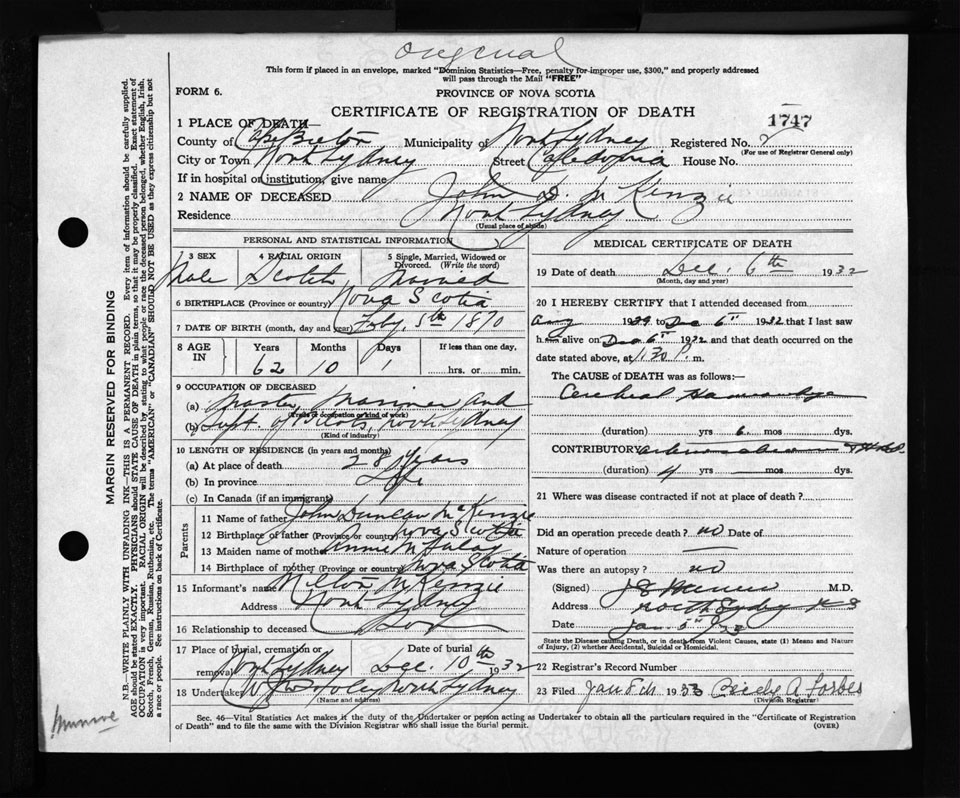 Original
This form if placed in an envelope, marked "Dominion Statistics—Free, penalty for improper use, $300," and properly addressed
will pass through the Mail "FREE"
FORM 6.
PROVINCE OF NOVA SCOTIA
CERTIFICATE OF REGISTRATION OF DEATH
1747
1 PLACE OF DEATH—
County of Cape Breton Municipality of North Sydney Registered No.
(For use of Registrar General only)
City or Town North Sydney Street Caledonia House No.
If in hospital or institution, give name
2 NAME OF DECEASED John D. McKenzie
Residence North Sydney
(Usual place of abode)
PERSONAL AND STATISTICAL INFORMATION
3 SEX 4 RACIAL ORIGIN 5 Single, Married, Widowed or
Divorced. (Write the word)
Male Scotch Married
6 BIRTHPLACE (Province or country) Nova Scotia
7 DATE OF BIRTH (month, day and year) Feby. 5th 1870
8 AGE IN Years Months Days If less than one day.
62 10 1 hrs. or min.
9 OCCUPATION OF DECEASED
(a) Master Mariner and
(Trade or occupation or kind of work)
(b) Supt. of Pilots, North Sydney
(Kind of industry)
10 LENGTH OF RESIDENCE (in years and months)
(a) At place of death 28 years
(b) In province Life
(c) In Canada (if an immigrant)
Parents
11 Name of father John Duncan McKenzie
12 Birthplace of father (Province or country) Nova Scotia
13 Maiden name of mother Annie
14 Birthplace of mother (Province or country) Nova Scotia
15 Informant's name Milton McKenzie
Address North Sydney
16 Relationship to deceased Son
17 Place of burial, cremation or Date of burial
removal North Sydney Dec. 10th 1932
18 Undertaker North Sydney
(Name and address)
MEDICAL CERTIFICATE OF DEATH
19 Date of death Dec. 6th 1932
(Month, day and year)
20 I HEREBY CERTIFY that I attended deceased from
Aug 1929 to Dec 6th 1932 that I last saw
him alive on Dec 6th 1932 and that death occurred on the
date stated above, at 1.30 P. m.
The CAUSE of DEATH was as follows:—
Cerebral Haemorrhage
(duration) yrs 6 mos dys.
CONTRIBUTORY
(duration) 4 yrs mos dys.
21 Where was disease contracted if not at place of death?
Did an operation precede death? no Date of
Nature of operation
Was there an autopsy? no
(Signed) M.D.
Address North Sydney N S
Date Jan 5th
State the Disease causing Death, or in death from Violent Causes, state (1) Means and Nature
of Injury, (2) whether Accidental, Suicidal or Homicidal.
22 Registrar's Record Number
23 Filed Jan 8th 1933 A. Forbes
(Division Registrar)
Sec. 46—Vital Statistics Act makes it the duty of the Undertaker or person acting as Undertaker to obtain all the particulars required in the "Certificate of Registration
of Death" and to file the same with the Division Registrar who shall issue the burial permit. (OVER)
MARGIN RESERVED FOR BINDING
N.B.—WRITE PLAINLY WITH UNFADING INK—THIS IS A PERMANENT RECORD. Every item of information should be carefully supplied.
AGE should be stated EXACTLY. PHYSICIANS should STATE CAUSE OF DEATH in plain terms, so that it may be properly classified. Exact statement of
OCCUPATION is very important. RACIAL ORIGIN will be described by stating to what people or race the deceased person belonged, whether English, Irish,
Scotch, French, German, Russian, Ruthenian, etc. The terms "AMERICAN" or "CANADIAN" SHOULD NOT BE USED as they express citizenship but not
a race or people. See instructions on back of Certificate.
Munroe